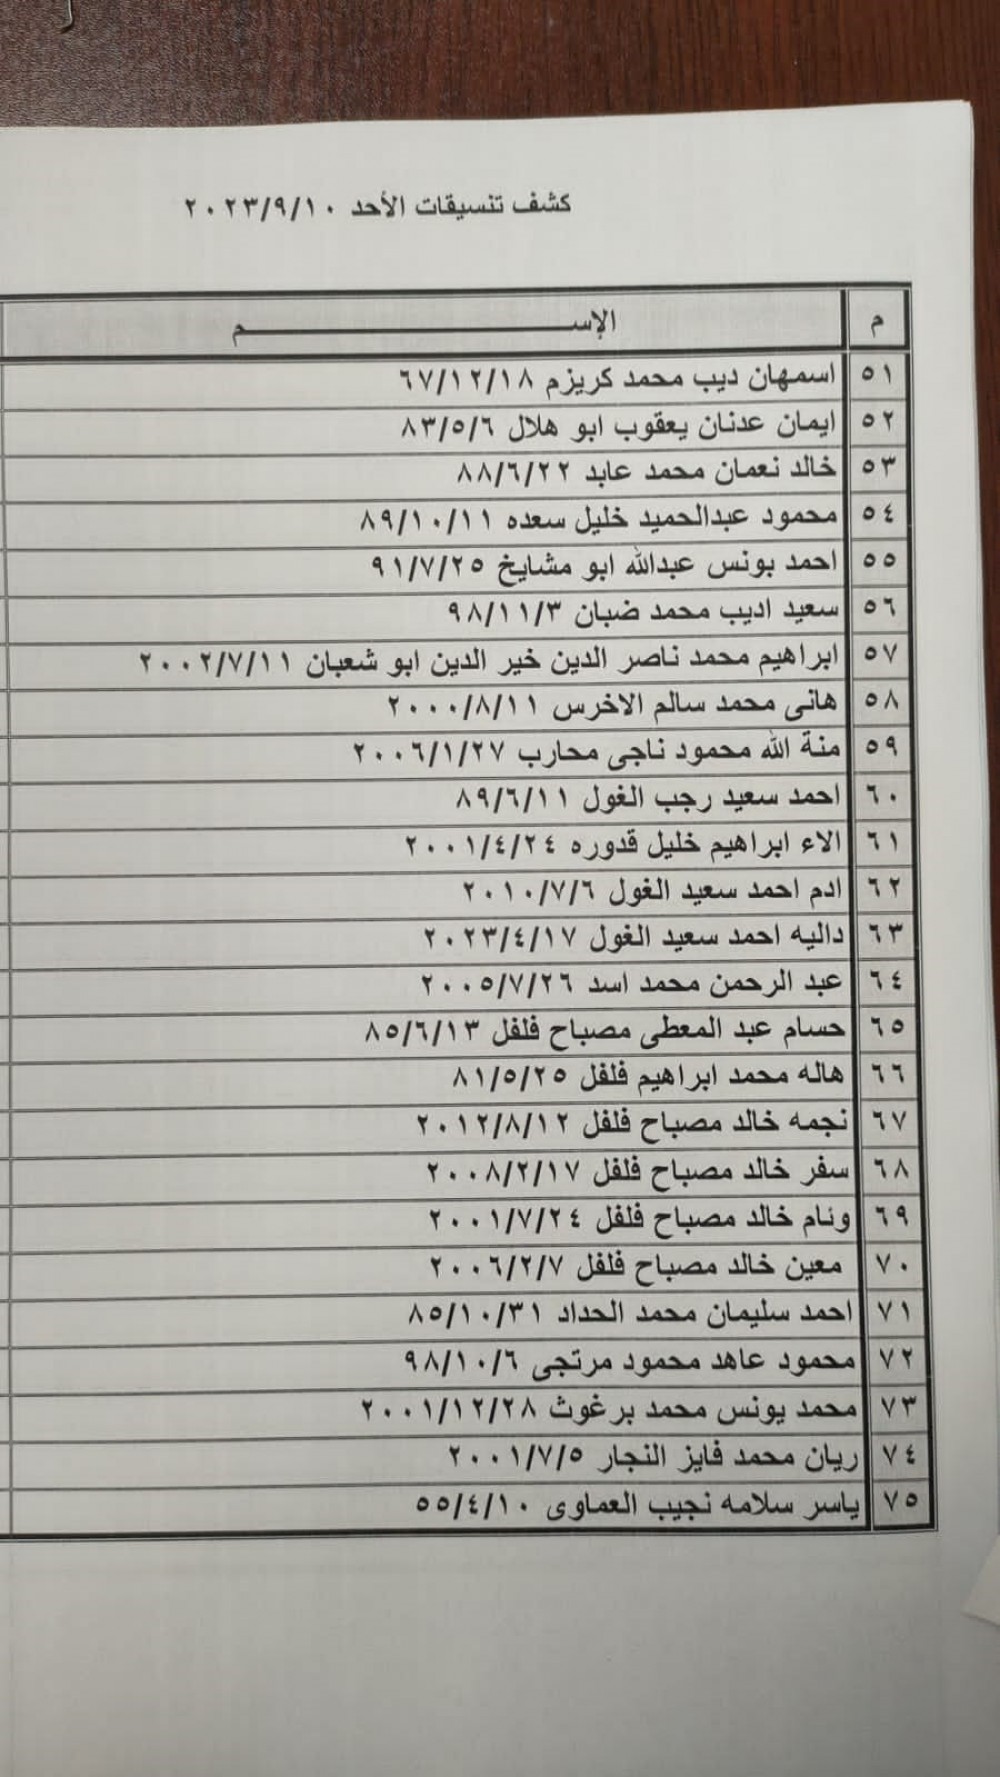 كشف تنسيقات الأحد ٢٠٢٣/٩/١٠
م الإســـــــــــــــــــــــــم
٥١ اسمهان ديب محمد كريزم ٦٧/١٢/١٨
٥٢ ايمان عدنان يعقوب ابو هلال ٨٣/٥/٦
٥٣ خالد نعمان محمد عابد ٨٨/٦/٢٢
٥٤ محمود عبدالحميد خليل سعده ٨٩/١٠/١١
٥٥ احمد بونس عبدالله ابو مشايخ ٩١/٧/٢٥
٥٦ سعيد اديب محمد ضبان ٩٨/١١/٣
٥٧ ابراهيم محمد ناصر الدين خير الدين ابو شعبان ٢٠٠٢/٧/١١
٥٨ هانى محمد سالم الاخرس ٢٠٠٠/٨/١١
٥٩ منة الله محمود ناجى محارب ٢٠٠٦/١/٢٧
٦٠ احمد سعيد رجب الغول ٨٩/٦/١١
٦١ الاء ابراهيم خليل قدوره ٢٠٠١/٤/٢٤
٦٢ ادم احمد سعيد الغول ٢٠١٠/٧/٦
٦٣ داليه احمد سعيد الغول ٢٠٢٣/٤/١٧
٦٤ عبد الرحمن محمد اسد ٢٠٠٥/٧/٢٦
٦٥ حسام عبد المعطى مصباح فلفل ٨٥/٦/١٣
٦٦ هاله محمد ابراهيم فلفل ٨١/٥/٢٥
٦٧ نجمه خالد مصباح فلفل ٢٠١٢/٨/١٢
٦٨ سفر خالد مصباح فلفل ٢٠٠٨/٢/١٧
٦٩ وئام خالد مصباح فلفل ٢٠٠١/٧/٢٤
٧٠ معين خالد مصباح فلفل ٢٠٠٦/٢/٧
٧١ احمد سليمان محمد الحداد ٨٥/١٠/٣١
٧٢ محمود عاهد محمود مرتجى ٩٨/١٠/٦
٧٣ محمد يونس محمد برغوث ٢٠٠١/١٢/٢٨
٧٤ ريان محمد فايز النجار ٢٠٠١/٧/٥
٧٥ ياسر سلامه نجيب العماوى ٥٥/٤/١٠